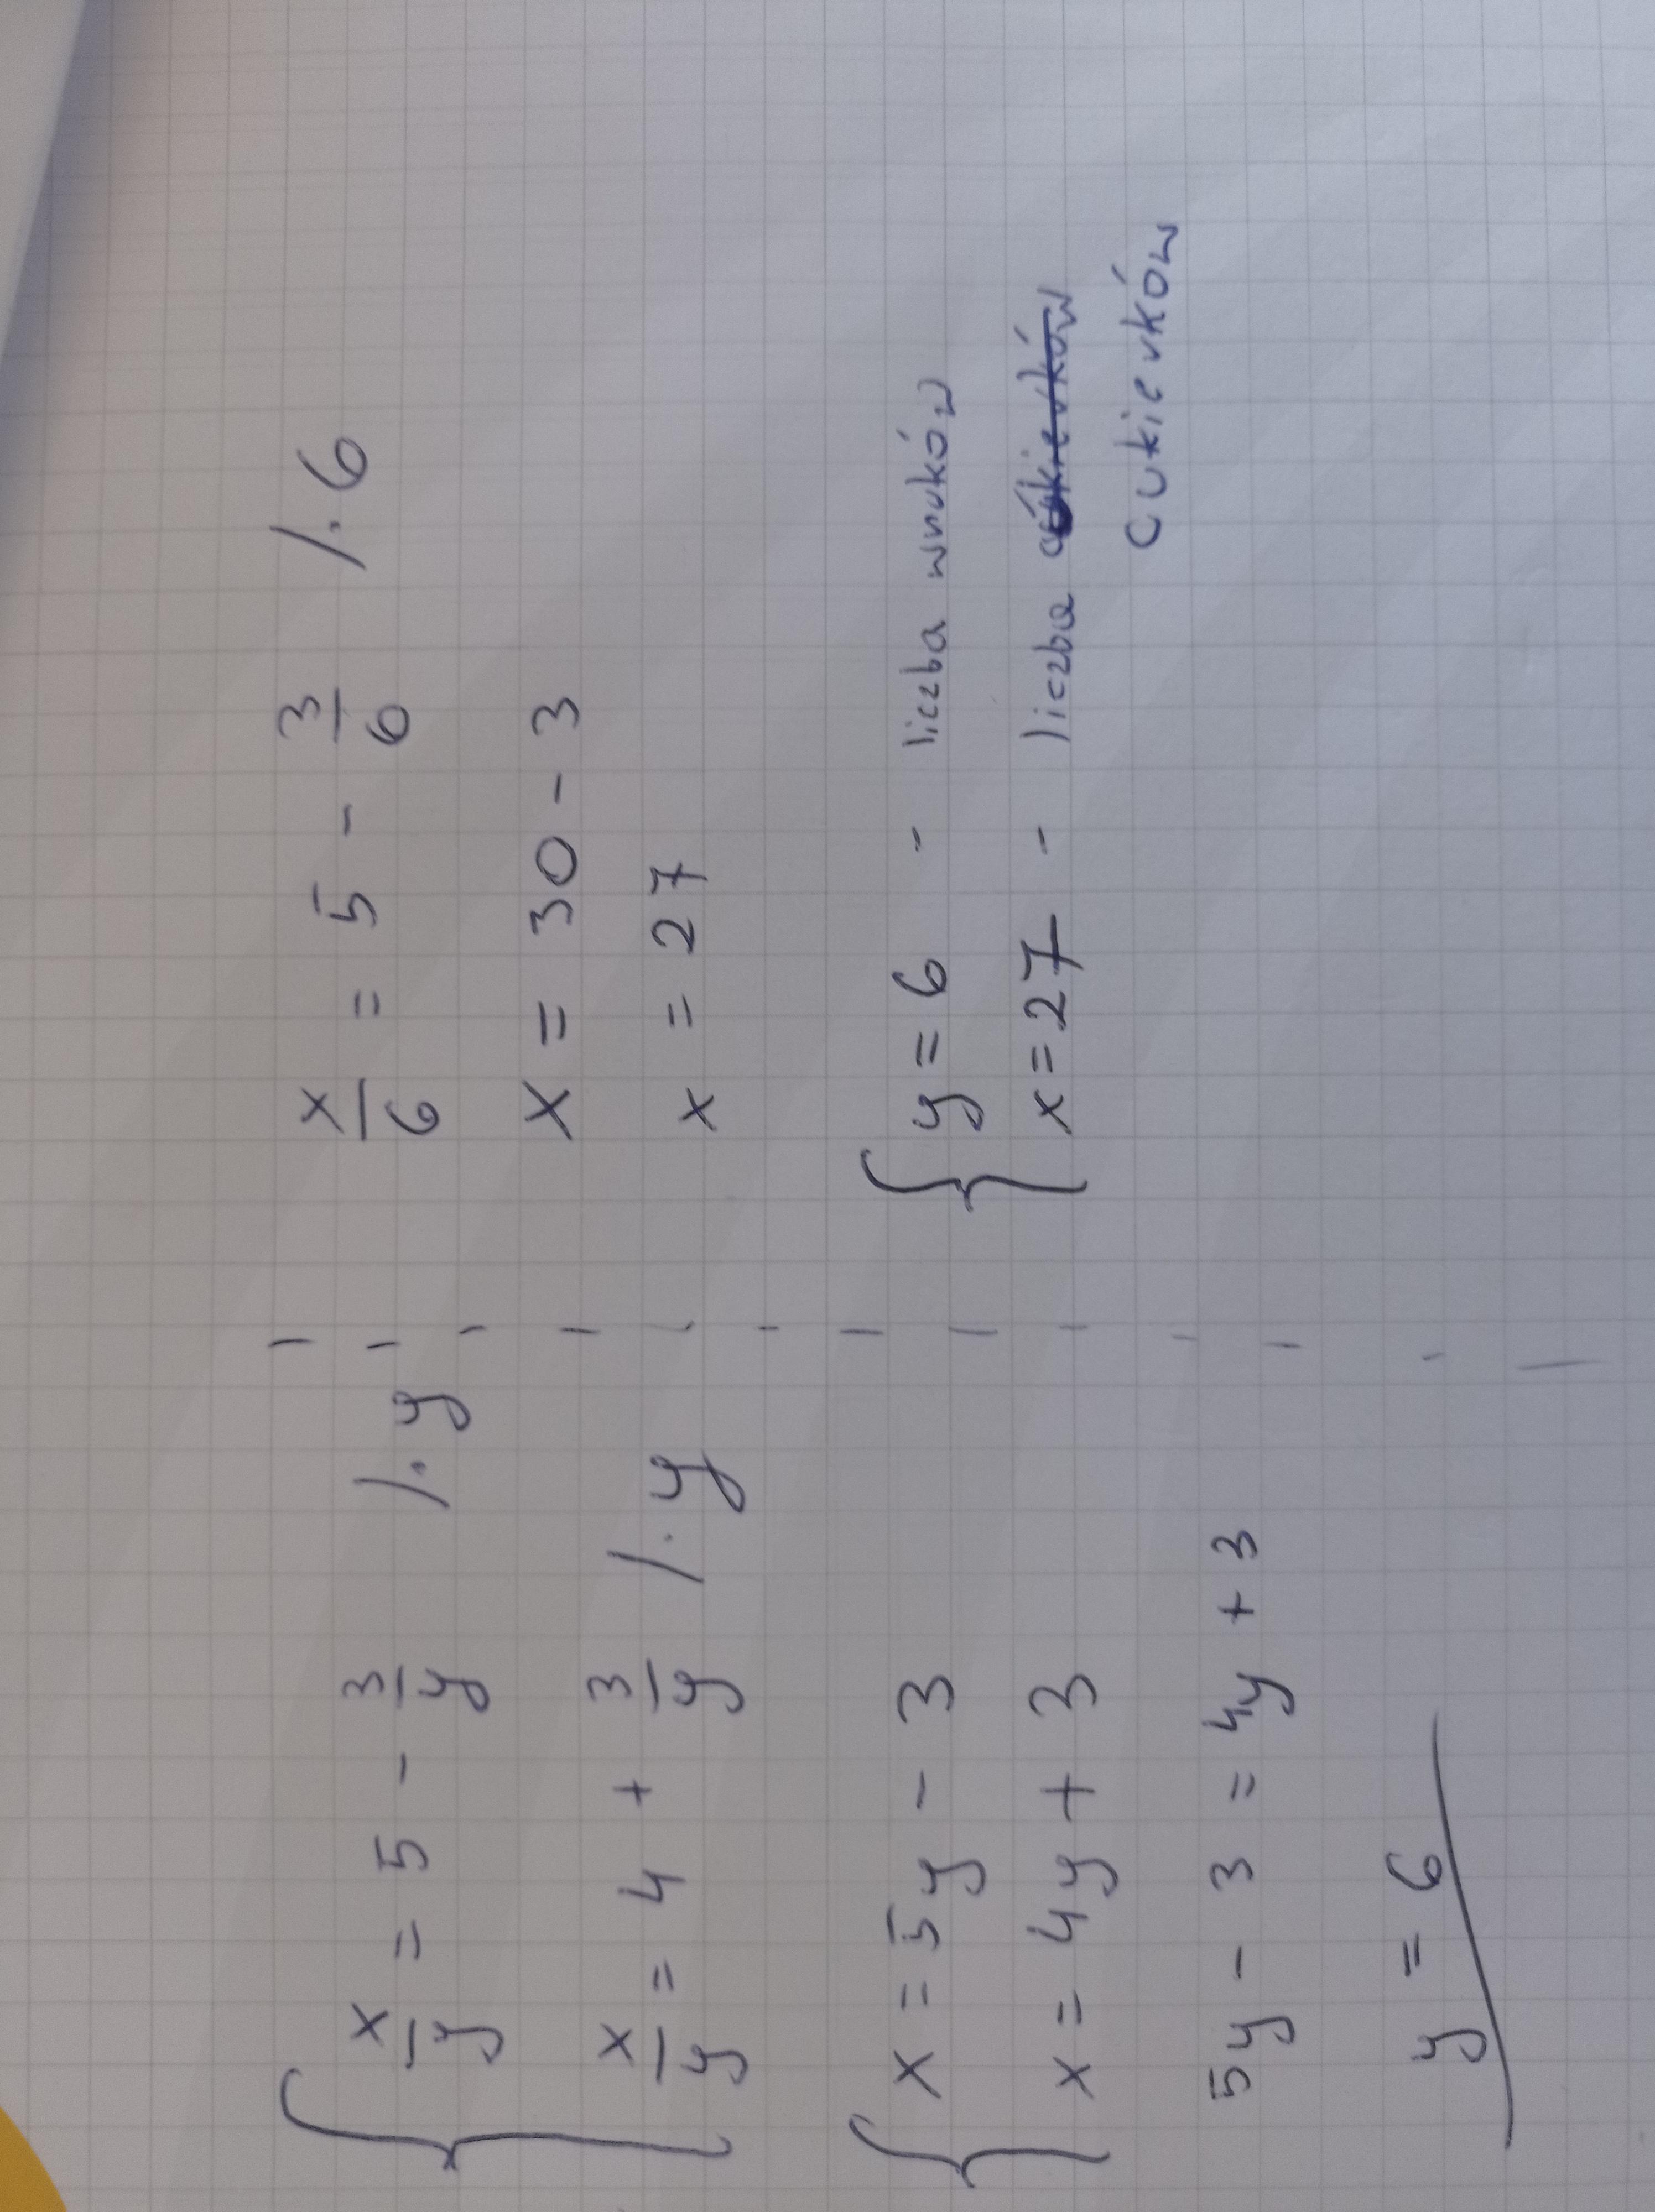 x/y = 5 - 3/y /·y
x/y = 4 + 3/y /·y
x = 5y - 3
x = 4y + 3
5y - 3 = 4y + 3
y = 6
x/6 = 5 - 3/6 /·6
x = 30 - 3
x = 27
y = 6 - liczba wnuków
x = 27 - liczba
cukierków